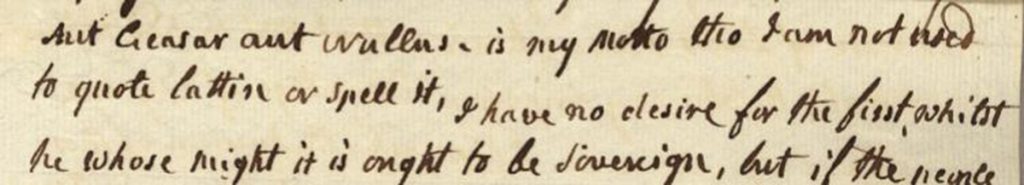 Aut Ceasar aut wullus. is my Motto tho I am not used
to quote lattin or spell it, I have no desire for the first, whilst
he whose might it is ought to be Sovereign, but if the people